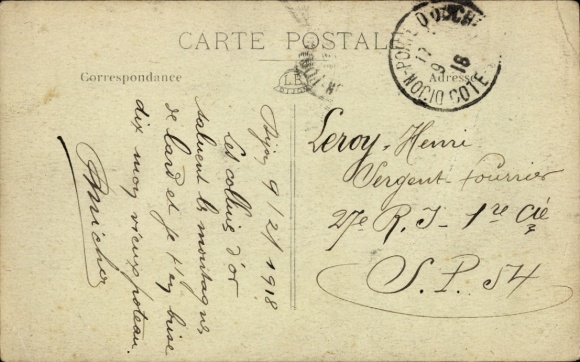 CARTE POSTALE
Correspondance
Adresse
Dijon 9/2/1918
Les collines d'or
saluent les montagnes
de lard et je t'en brise
dix mon vieux poteau.
Leroy, Henri
Sergent Fourrier
27e R. I - 1re Cie
S. P. 54
DIJON
COTE D'OR
9
18